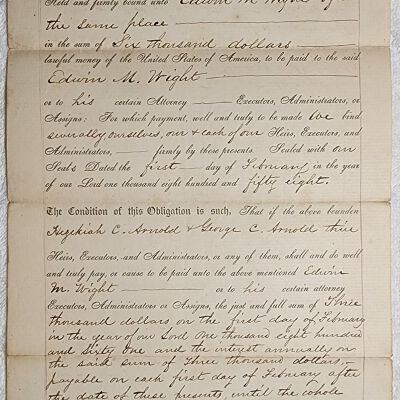 Held and firmly bound unto Edwin M. Wight of
the same place
in the sum of Six thousand dollars
lawful money of the United States of America, to be paid to the said
Edwin M. Wight
or to his certain Attorney Executors, Administrators, or
Assigns: For which payment, well and truly to be made we bind
severally ourselves, our & each of our Heirs, Executors, and
Administrators, firmly by these presents. Sealed with our
Seals Dated the first day of February in the year
of our Lord one thousand eight hundred and fifty eight.
The Condition of this Obligation is such, That if the above bounden
Hezekiah C. Arnold & George C. Arnold thire
Heirs, Executors, and Administrators, or any of them, shall and do well
and truly pay, or cause to be paid unto the above mentioned Edwin
M. Wight or to his certain attorney
Executors, Administrators or Assigns, the just and full sum of Three
thousand dollars on the first day of February
in the year of our Lord One thousand eight hundred
and Sixty One and the interest annually on
the said sum of Three thousand dollars,
payable on each first day of February after
the date of these presents, until the whole